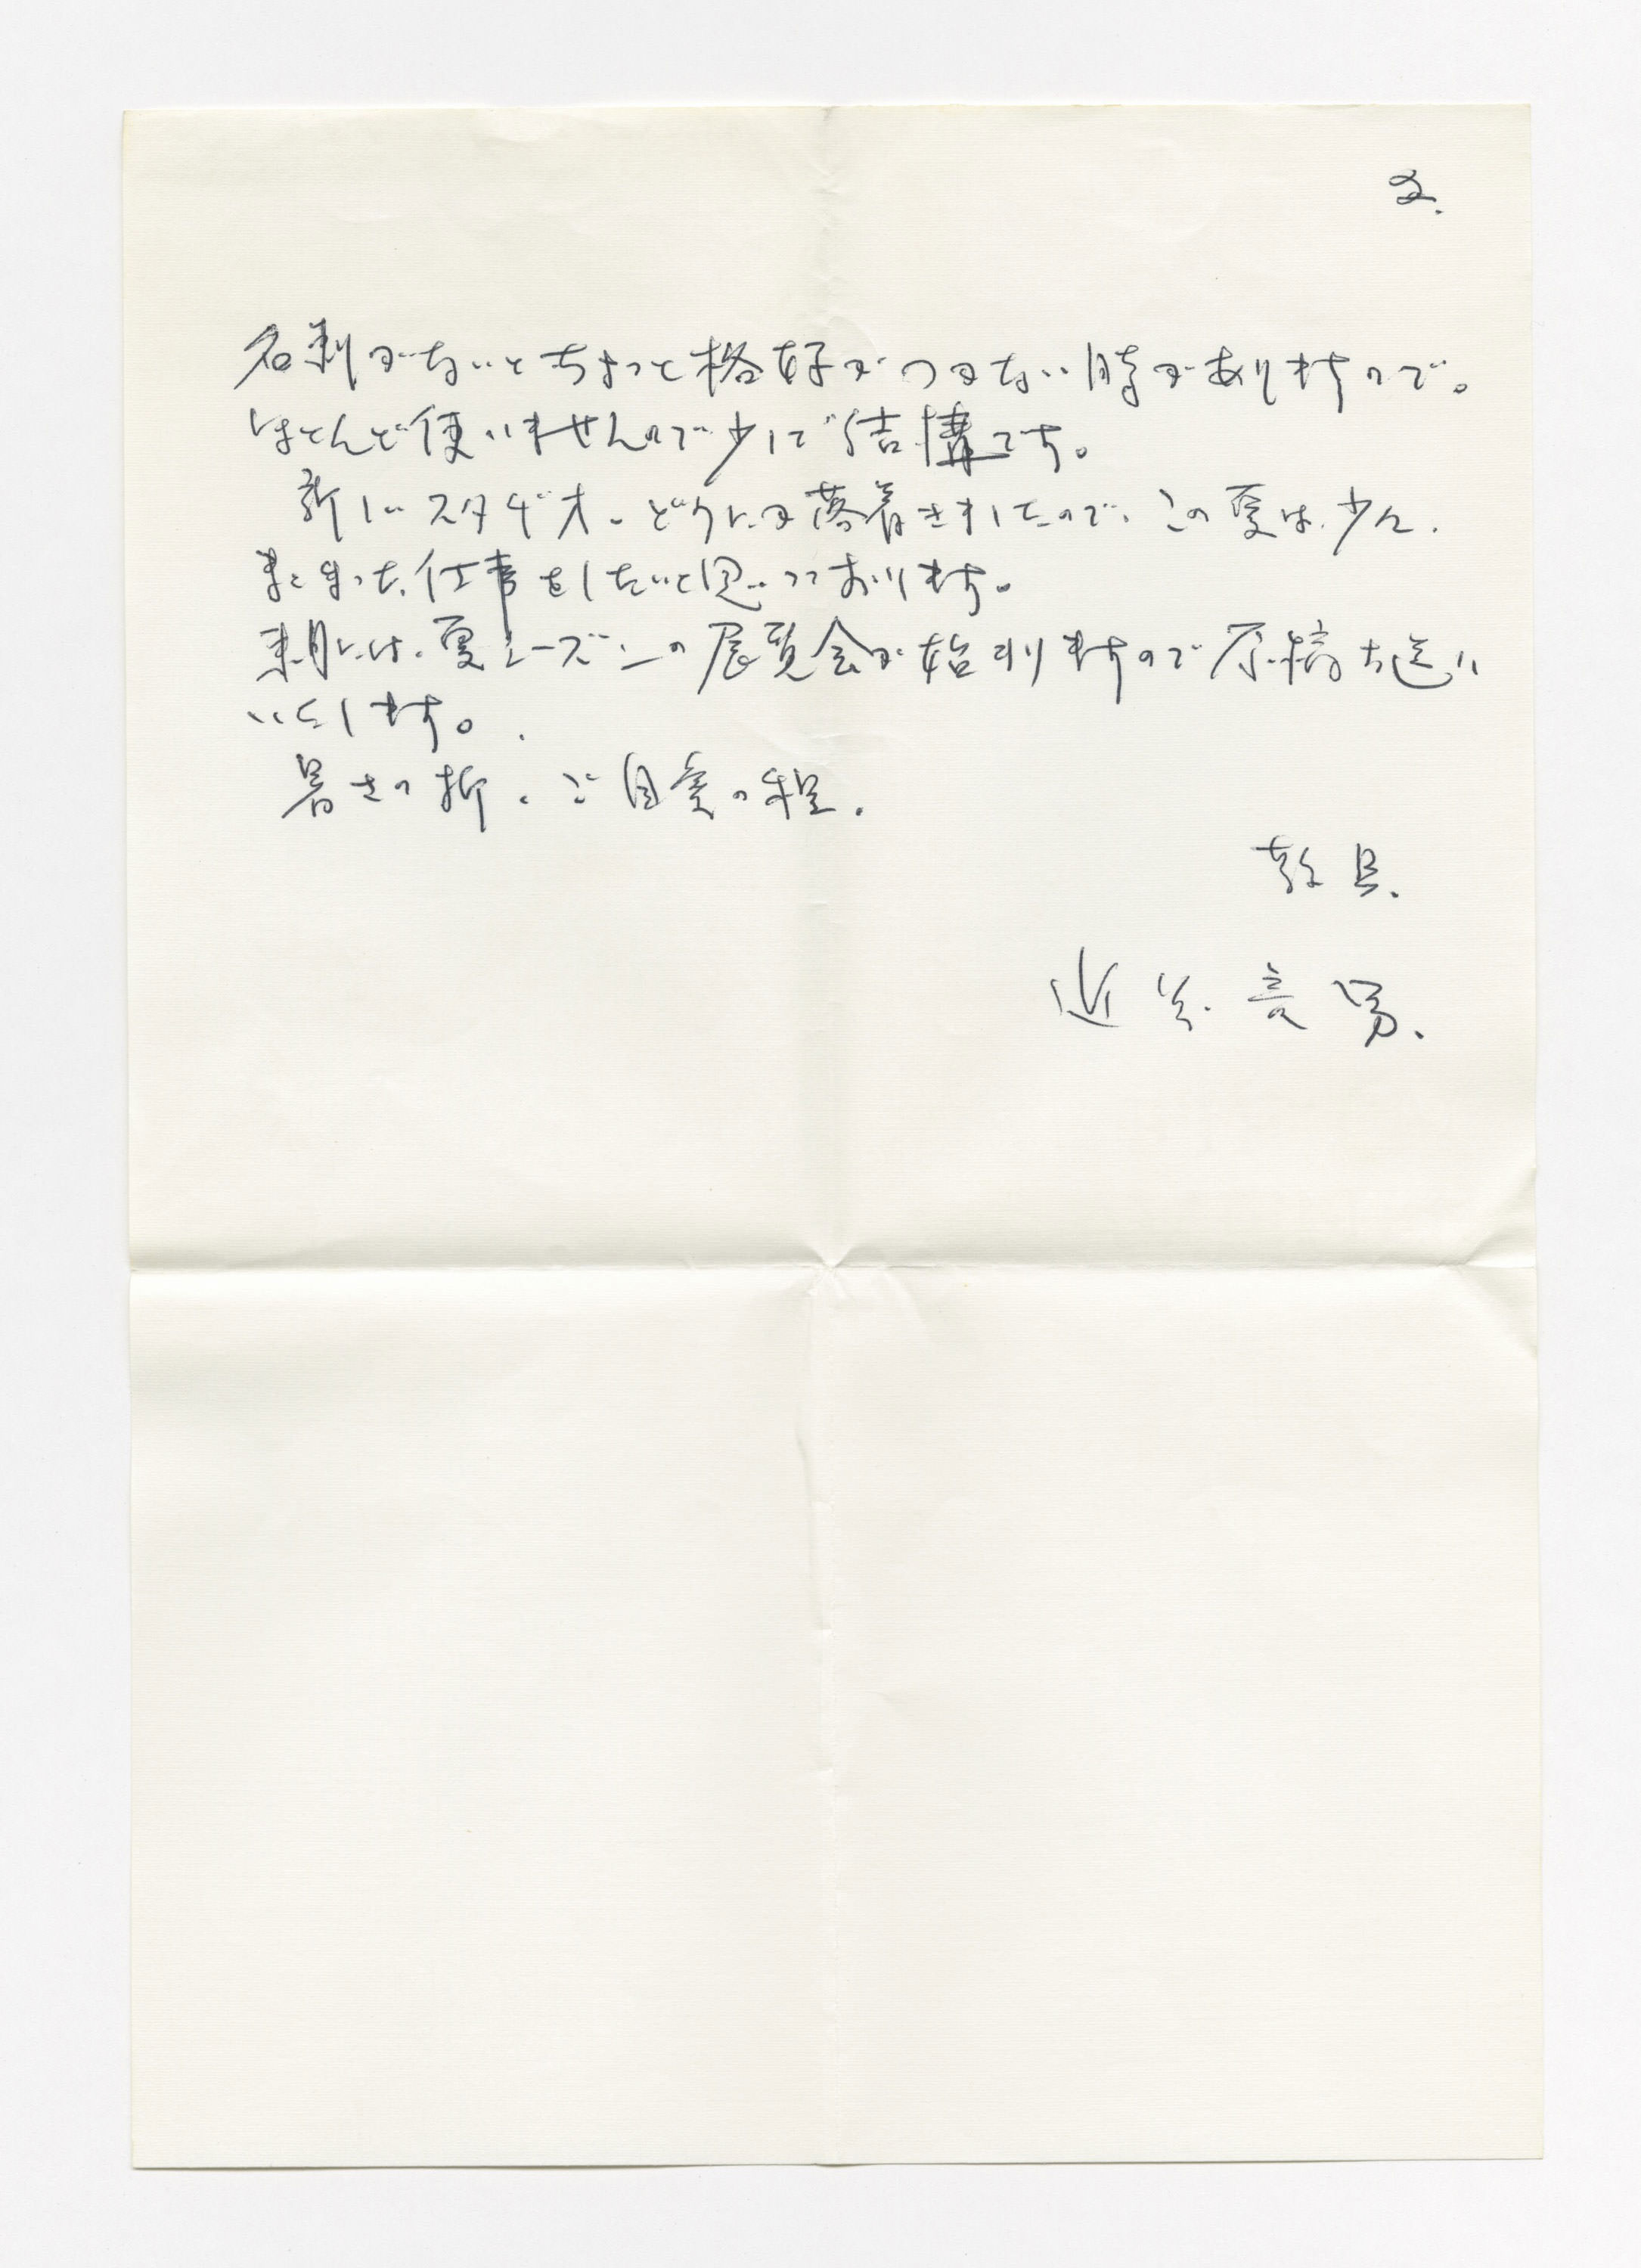 2.
名刺がないとちょっと格好がつかない時がありますので。
ほとんど使いませんので少しで結構です。
新しいスタヂオ、どうにか落着きましたので、この夏は、少し、
まとまった仕事をしたいと思っております。
来月には、夏シーズンの展覧会が始まりますので原稿お送り
いたします。
暑さの折、ご自愛の程。
敬具.
近 男.